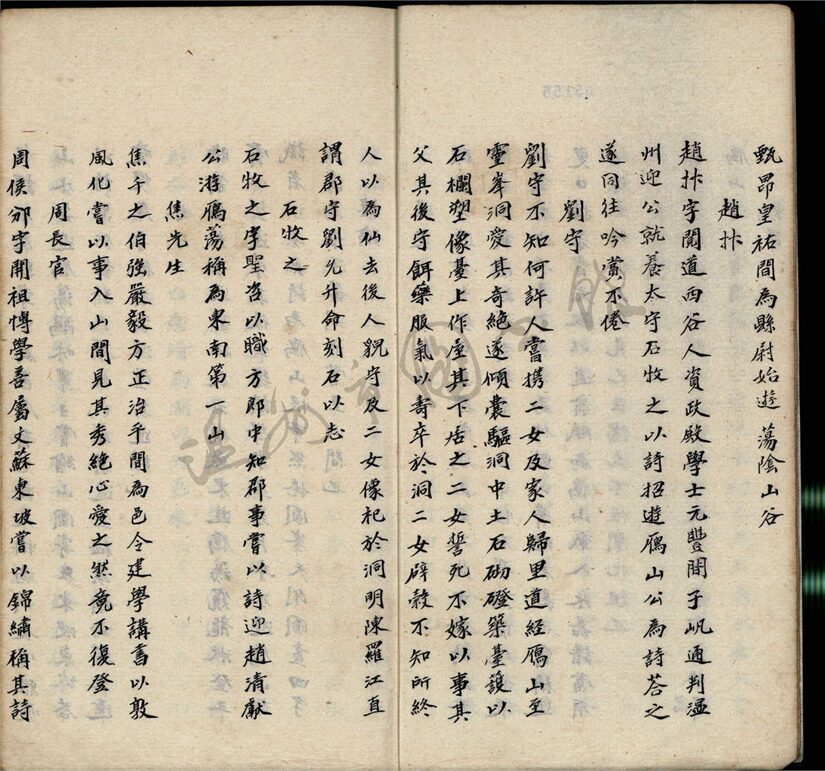 甄昂皇祐間為縣尉始遊蕩陰山谷
趙抃
趙抃字閱道西谷人資政殿學士元豐間子㠶通判溫
州迎公就養太守石牧之以詩招遊鴈山公為詩荅之
遂同往吟賞不倦
劉守
劉守不知何許人嘗携二女及家人歸里道經鴈山至
靈峯洞愛其奇絶遂傾囊驅洞中土石砌磴築臺護以
石欄塑像臺上作屋其下居之二女誓死不嫁以事其
父其後守餌藥服氣以壽卒於洞二女辟穀不知所終
人以為仙去後人貌守及二女像祀於洞明陳羅江直
謂郡守劉允升命刻石以志
石牧之
石牧之字聖咨以職方郎中知郡事嘗以詩迎趙清獻
公游鴈蕩稱為東南第一山
焦先生
焦千之伯強嚴毅方正治平間為邑令建學講書以敦
風化嘗以事入山間見其秀絶心愛之然竟不復登
周長官
周侯邠字開祖愽學善屬文蘇東坡嘗以錦繡稱其詩
温州市圖書館